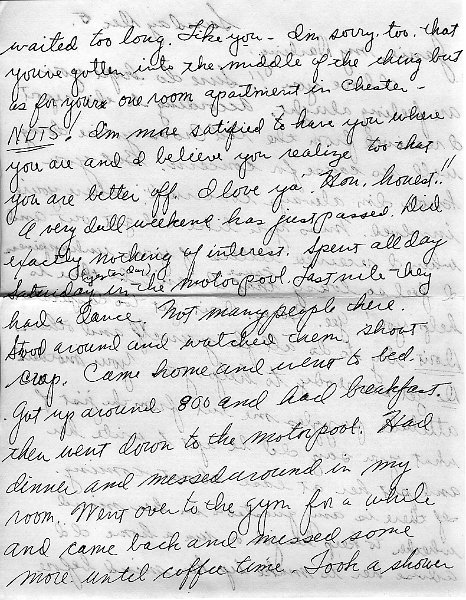 waited too long. Like you - I'm sorry, too, that
you've gotten into the middle of the thing but
as for you're one room apartment in Chester -
NUTS! I'm more satified to have you where
you are and I believe you realize too that
you are better off. I love ya' Hon, honest!!
A very dull weekend has just passed. Did
exactly nothing of interest. Spent all day
(yesterday)
Saturday in the motorpool. Last nite they
had a dance. Not many people there.
Stood around and watched them, shoot
crap. Came home and went to bed.
Got up around 800 and had breakfast.
then went down to the motorpool. Had
dinner and messed around in my
room. Went over to the gym for a while
and came back and missed some
more until coffee time. Took a shower